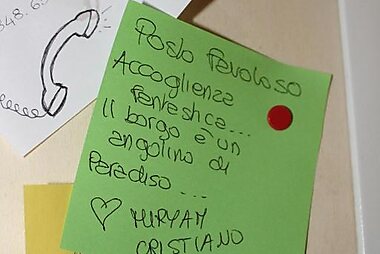 348.65
Posto favoloso
Accoglienza
fantastica...
Il borgo è un
angolino di
Paradiso...
MIRYAM
CRISTIANO